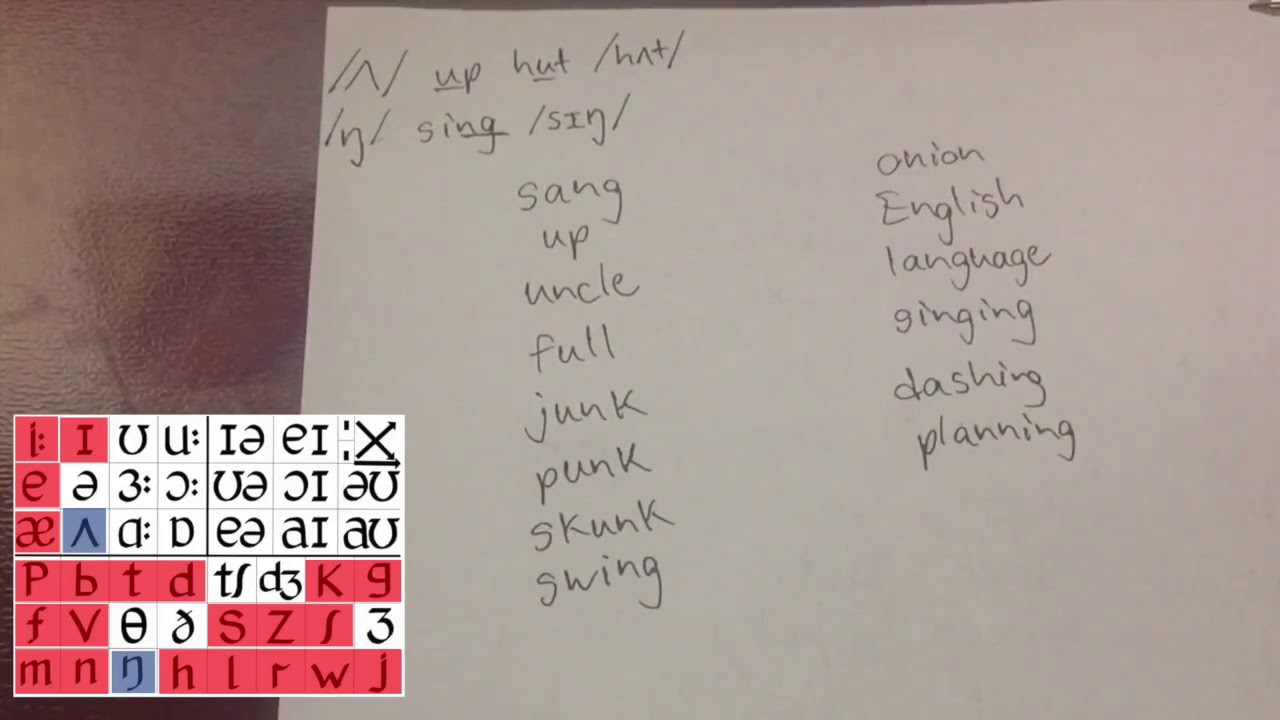 /ʌ/ up hut /hʌt/
/ŋ/ sing /sɪŋ/
sang
up
uncle
full
junk
punk
skunk
swing
onion
English
language
singing
dashing
planning
i: ɪ ʊ u: ɪə eɪ
e ə ɜ: ɔ: ʊə ɔɪ əʊ
æ ʌ ɑ: ɒ eə aɪ aʊ
p b t d tʃ dʒ k g
f v θ ð s z ʃ ʒ
m n ŋ h l r w j